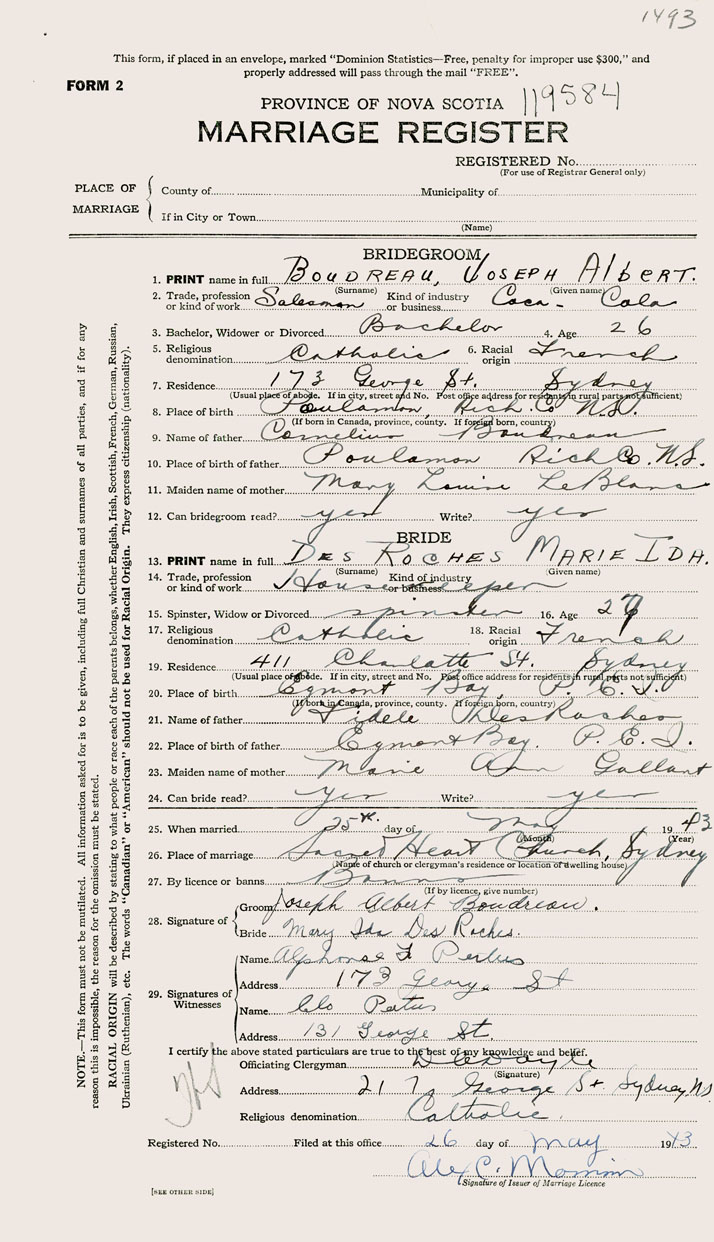 1493
This form, if placed in an envelope, marked "Dominion Statistics—Free, penalty for improper use $300," and
properly addressed will pass through the mail "FREE".
FORM 2
PROVINCE OF NOVA SCOTIA 119584
MARRIAGE REGISTER
REGISTERED No.
(For use of Registrar General only)
PLACE OF MARRIAGE
County of Municipality of
If in City or Town
(Name)
BRIDEGROOM
1. PRINT name in full BOUDREAU, JOSEPH AlbERT.
(Surname) (Given name)
2. Trade, profession or kind of work Salesman Kind of industry or business Coca-Cola
3. Bachelor, Widower or Divorced Bachelor 4. Age 26
5. Religious denomination Catholic 6. Racial origin French
7. Residence 173 George St. Sydney
(Usual place of abode. If in city, street and No. Post office address for residents in rural parts not sufficient)
8. Place of birth Poulamon, Rich. Co N.S.
(If born in Canada, province, county. If foreign born, country)
9. Name of father Cornelius Boudreau
10. Place of birth of father Poulamon Rich Co. N.S.
11. Maiden name of mother Mary Louise LeBlanc
12. Can bridegroom read? yes Write? yes
BRIDE
13. PRINT name in full DES ROCHES MARIE IDA.
(Surname) (Given name)
14. Trade, profession or kind of work Housekeeper Kind of industry or business
15. Spinster, Widow or Divorced spinster 16. Age 27
17. Religious denomination Catholic 18. Racial origin French
19. Residence 411 Charlotte St. Sydney
(Usual place of abode. If in city, street and No. Post office address for residents in rural parts not sufficient)
20. Place of birth Egmont Bay, P.E.I.
(If born in Canada, province, county. If foreign born, country)
21. Name of father Fidele DesRoches
22. Place of birth of father Egmont Bay. P.E.I.
23. Maiden name of mother Marie Ann Gallant
24. Can bride read? yes Write? yes
25. When married 25th. day of May 1943
(Month) (Year)
26. Place of marriage Sacred Heart Church, Sydney
(Name of church or clergyman's residence or location of dwelling house)
27. By licence or banns Banns
(If by licence, give number)
28. Signature of
Groom Joseph Albert Boudreau.
Bride Mary Ida Des Roches.
29. Signatures of Witnesses
Name Alphonse F
Address 173 George St
Name
Address 131 George St.
I certify the above stated particulars are true to the best of my knowledge and belief.
Officiating Clergyman
(Signature)
Address George St. Sydney NS
Religious denomination Catholic.
Registered No. Filed at this office 26 day of May 1943
Alex C.
Signature of Issuer of Marriage Licence
[SEE OTHER SIDE]
NOTE.—This form must not be mutilated. All information asked for is to be given, including full Christian and surnames of all parties, and if for any
reason this is impossible, the reason for the omission must be stated.
RACIAL ORIGIN will be described by stating to what people or race each of the parents belongs, whether English, Irish, Scottish, French, German, Russian,
Ukrainian (Ruthenian), etc. The words "Canadian" or "American" should not be used for Racial Origin. They express citizenship (nationality).